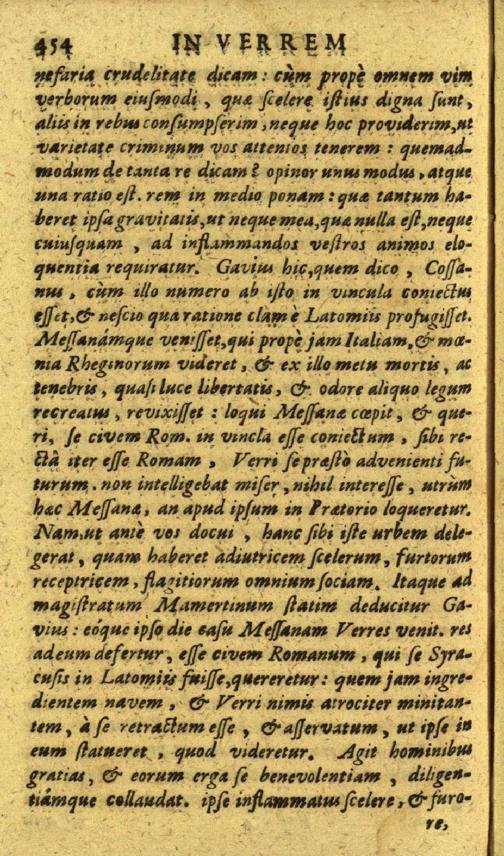 454 IN VERREM
nefaria crudelitate dicam: cùm propè omnem vim
verborum eiusmodi, quæ scelere istius digna sunt,
aliis in rebus consumpserim, neque hoc providerim, ut
varietate criminum vos attentos tenerem: quemad-
modum de tanta re dicam? opinor unus modus, atque
una ratio est. rem in medio ponam: quæ tantum ha-
beret ipsa gravitatis, ut neque mea, quæ nulla est, neque
cuiusquam, ad inflammandos vestros animos elo-
quentia requiratur. Gavius hic, quem dico, Cossa-
nus, cùm illo numero ab isto in vincula coniectus
esset, & nescio qua ratione clam è Latomiis profugisset.
Messanámque venisset, qui propè jam Italiam, & mœ-
nia Rheginorum videret, & ex illo metu mortis, ac
tenebris, quasi luce libertatis, & odore aliquo legum
recreatus, revixisset: loqui Messanæ cœpit, & que-
ri, se civem Rom. in vincla esse coniectum, sibi re-
ctâ iter esse Romam, Verri se præstò advenienti fu-
turum. non intelligebat miser, nihil interesse, utrùm
hæc Messanæ, an apud ipsum in Prætorio loqueretur.
Nam, ut antè vos docui, hanc sibi iste urbem dele-
gerat, quam haberet adiutricem scelerum, furtorum
receptricem, flagitiorum omnium sociam. Itaque ad
magistratum Mamertinum statim deducitur Ga-
vius: eóque ipso die casu Messanam Verres venit. res
ad eum defertur, esse civem Romanum, qui se Syra-
cusis in Latomiis fuisse, quereretur: quem jam ingre-
dientem navem, & Verri nimis atrociter minitan-
tem, à se retractum esse, & asservatum, ut ipse in
eum statueret, quod videretur. Agit hominibus
gratias, & eorum erga se benevolentiam, diligen-
tiámque collaudat. ipse inflammatus scelere, & furo-
re,